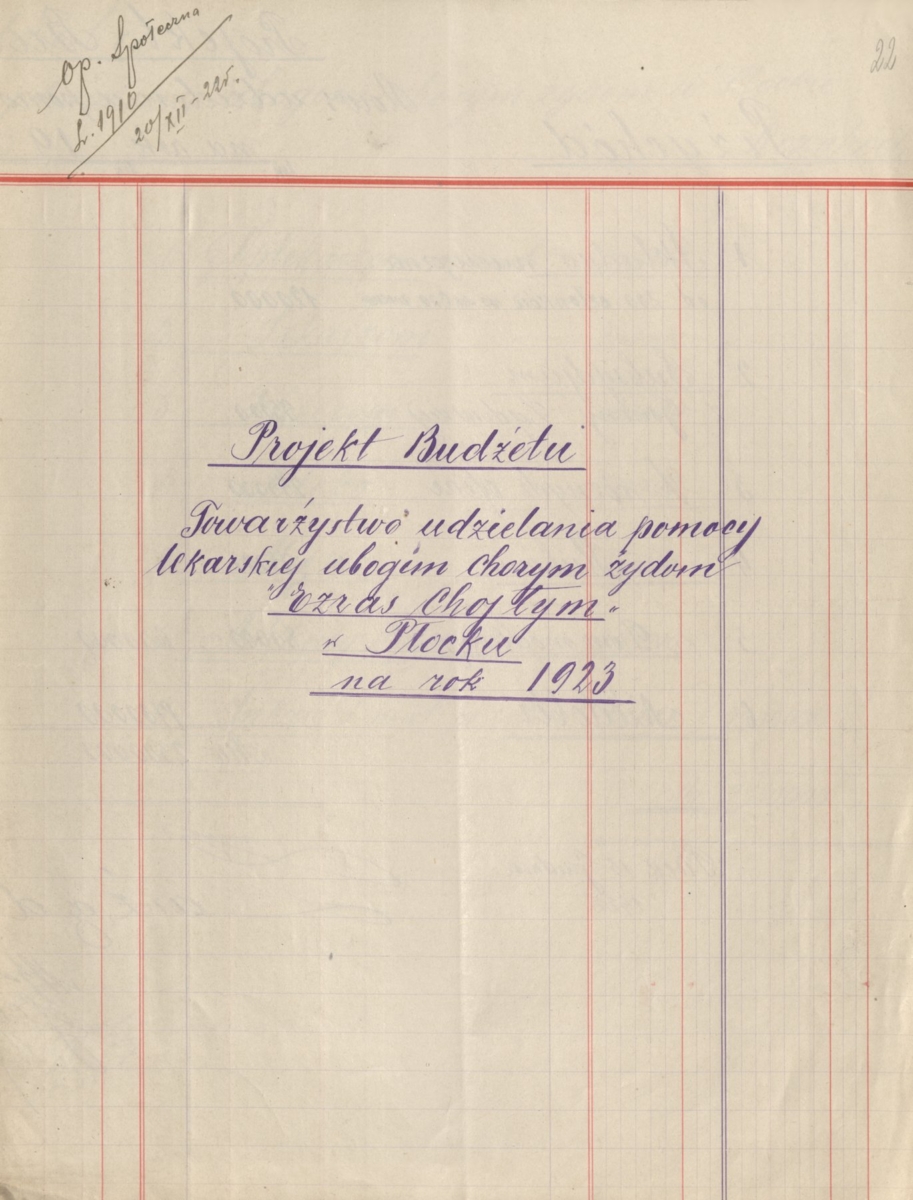 Op. Społeczna
L. 1910
20/XII-22r.
22
Projekt Budźetu
Towarźystwo udzielania pomocy
lekarskiej ubogim chorym żydom
"Ezras Chojłym"
w Płocku
na rok 1923